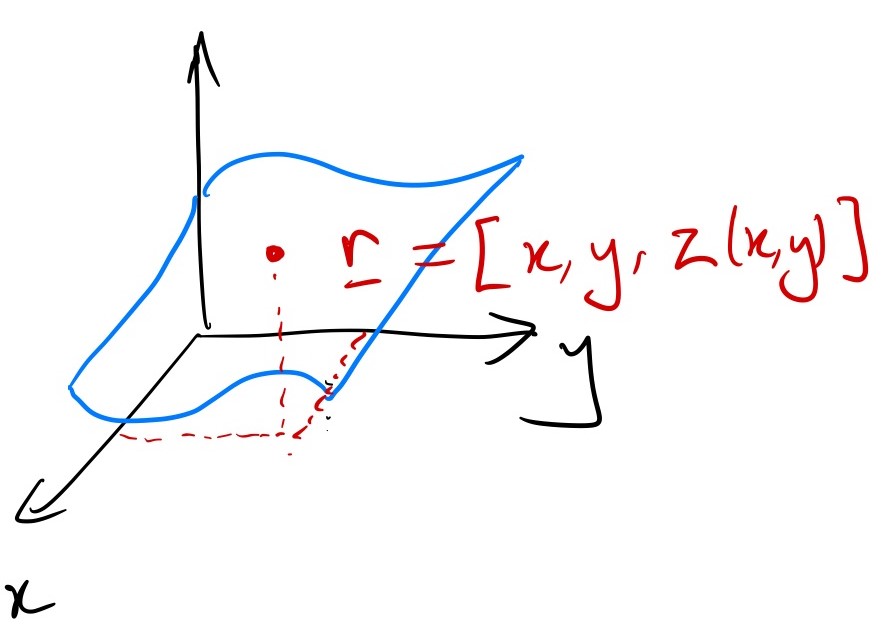 r = [x, y, z(x,y)]
y
x